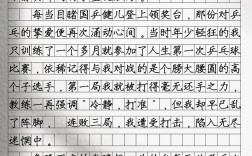 每当目睹国乒健儿登上领奖台，那份对乒
乓的挚爱便再次涌动心间，当时年少轻狂的我
只训练了一个多月就参加了人生第一次乒乓球
比赛，依稀记得与我对战的是个膀大腰圆的高
个子选手，第一局我就被打得毫无还手之力，
教练一再强调"冷静，打准"，但我却早已乱
了阵脚，连败三局，我遭受打击，陷入无尽
迷惘中。